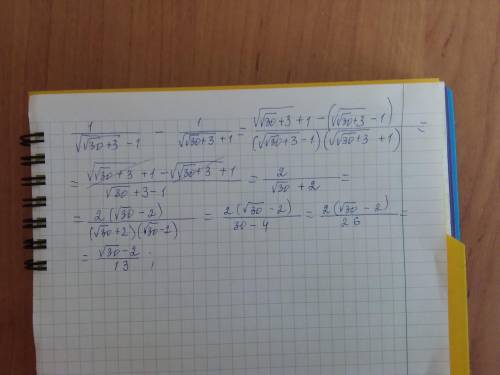 1/(√(√30+3) −1) − 1/(√(√30+3) +1) = (√(√30+3) +1 −(√(√30+3) −1))/((√(√30+3) −1)(√(√30+3) +1)) =
= (√(√30+3) +1 −√(√30+3) +1)/(√30 +3−1) = 2/(√30 +2) =
= 2(√30 −2)/((√30+2)(√30−2)) = 2(√30 −2)/(30−4) = 2(√30 −2)/26 =
= (√30−2)/13 ;